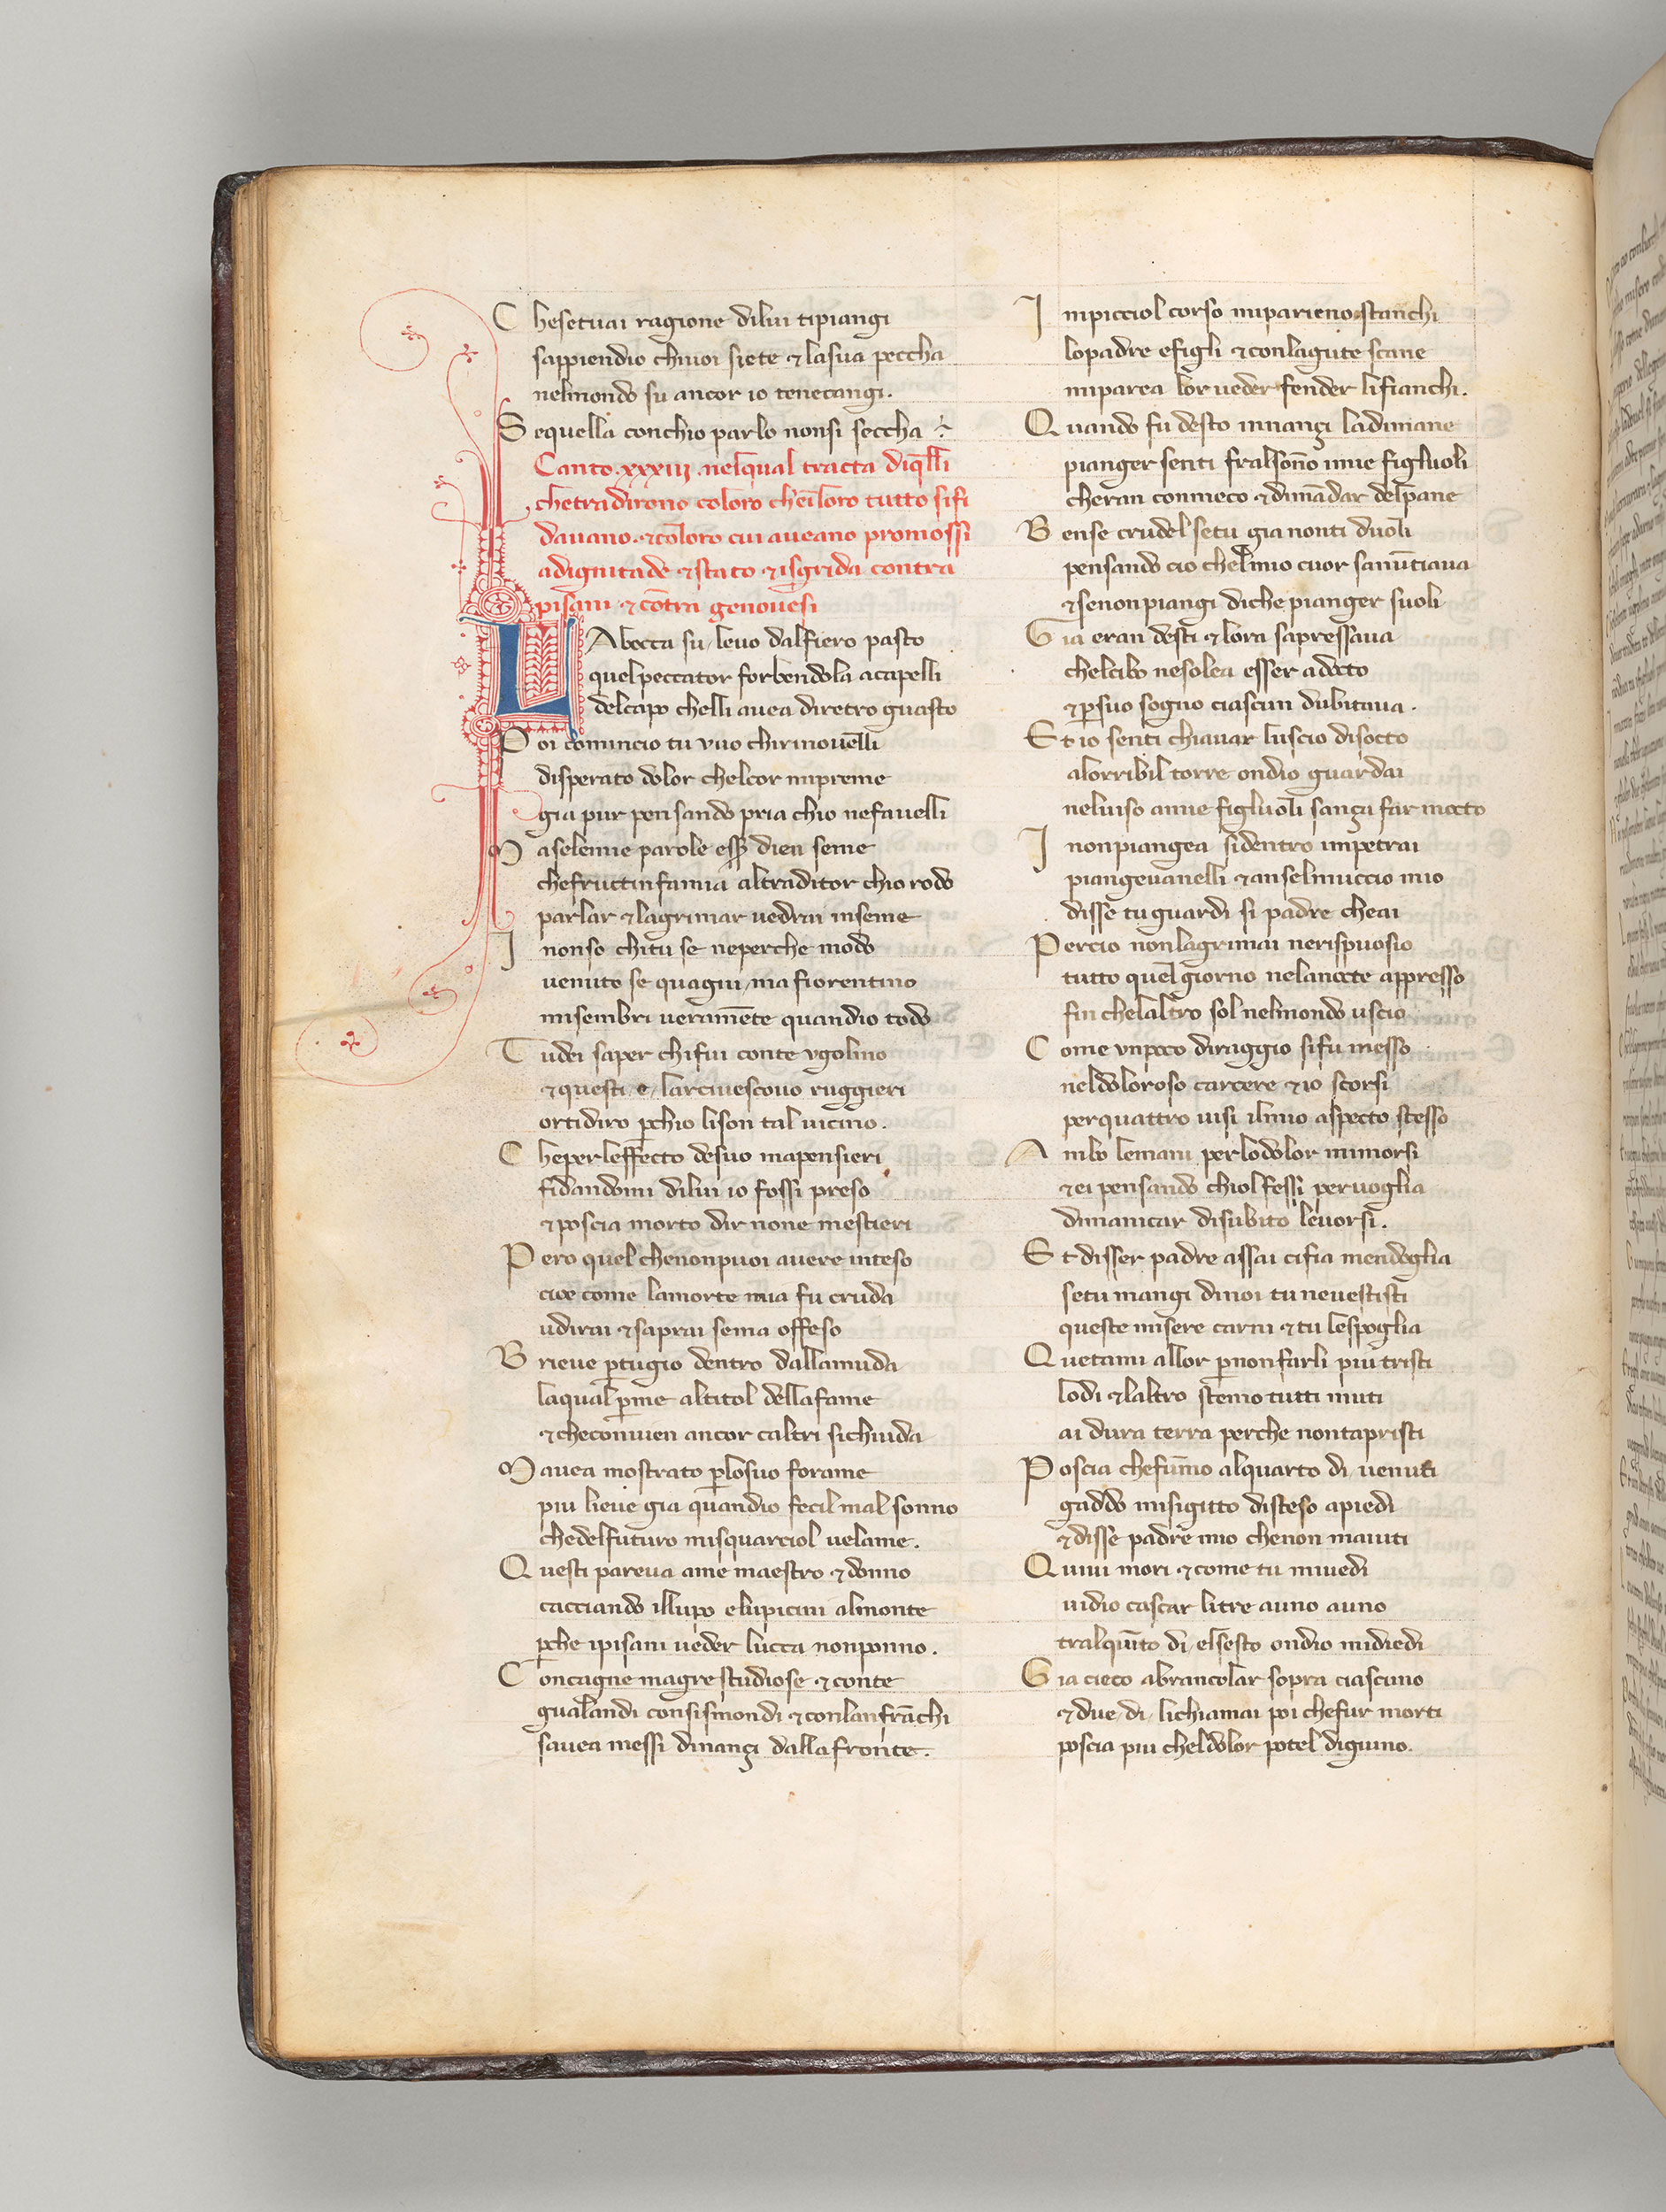 C hesetuai ragione dilui tipiangi
sappiendio chiuoi siete ⁊ lasua peccha
nelmondo su ancor io tenecangi.
S equella conchio parlo nonsi seccha
Canto .xxxiij. nelqual tracta diq̄lli
chetradirono coloro chēiloro tutto sifi
dauano. ⁊ cōloro cui aueano promossi
adignitade ⁊ stato ⁊ isgrida contra
pisani ⁊ cōtra genouesi
LAbocca su leuo dalfiero pasto
quelpeccator forbendola acapelli
delcapo chelli auea diretro guasto
P oi comincio tu vuo chirinouelli
disperato dolor chelcor mipreme
gia pur pensando pria chio nefauelli
M aselemie parole esser̄ dien seme
chefructinfamia altraditor chio rodo
parlar ⁊ lagrimar uedrai inseme
I nonso chitu se neperche modo
uenuto se quagiu, ma fiorentino
misembri ueramēte quandio todo
T udei saper chifui conte vgolino
⁊ questi e larciuescouo ruggieri
ortidiro ꝑchio lison tal uicino.
C heperleffecto desuo mapensieri
fidandomi dilui io fossi preso
⁊ poscia morto dir none mestieri
P ero quel chenonpuoi auere inteso
cioe come lamorte mia fu cruda
udirai ⁊ saprai sema offeso
B rieue ꝑtugio dentro dallamuda
laqual ꝑme altitol dellafame
⁊ checonuien ancor caltri sichiuda
M auea mostrato ꝑlosuo forame
piu lieue gia quandio fecil mal sonno
chedelfuturo misquarciol uelame.
Q uesti pareua ame maestro ⁊ donno
cacciando illupo elupicini almonte
ꝑche ipisani ueder lucca nonponno.
C oncagne magre studiose ⁊ conte
gualandi consismondi ⁊ conlanfrāchi
sauea messi dinanzi dallafronte.
I npicciol corso miparieno stanchi
lopadre efigli ⁊ conlagute scane
miparea lor ueder fender lifianchi.
Q uando fu desto innanzi ladimane
pianger senti fralsōno imie figluoli
cheran conmeco ⁊ dimādar delpane
B ense crudel setu gia nonti duoli
pensando cio chelmio cuor sanūtiaua
⁊ senonpiangi diche pianger suoli
G ia eran desti ⁊ lora sapressaua
chelcibo nesolea esser adocto
⁊ ꝑsuo sogno ciascun dubitaua.
E t io senti chiauar luscio disocto
alorribil torre ondio guardai
neluiso amie figluoli sanza far mocto
I nonpiangea sidentro impetrai
piangeuanelli ⁊ anselmuccio mio
disse tu guardi si padre cheai
P ercio nonlagrimai nerispuosio
tutto quelgiorno nelanocte appresso
fin chelaltro sol nelmondo uscio
C ome vnpoco diraggio sifu messo
neldoloroso carcere ⁊ io scorsi
perquattro uisi ilmio aspecto stesso
A mbo lemani perlodolor mimorsi
⁊ ei pensando chiolfessi peruoglia
dimanicar disubito leuorsi.
E t disser padre assai cifia mendoglia
setu mangi dinoi tu neuestisti
queste misere carni ⁊ tu lespoglia
Q uetami allor ꝑnonfarli piu tristi
lodi ⁊ laltro stemo tutti muti
ai dura terra perche nontapristi
P oscia chefūmo alquarto di uenuti
gaddo misigitto disteso apiedi
⁊ disse padre mio chenon maiuti
Q uiui mori ⁊ come tu miuedi
uidio cascar litre auno auno
tralquīto di, elsesto ondio midiedi
G ia cieco abrancolar sopra ciascuno
⁊ due di lichiamai poi chefur morti
poscia piu cheldolor potel digiuno.